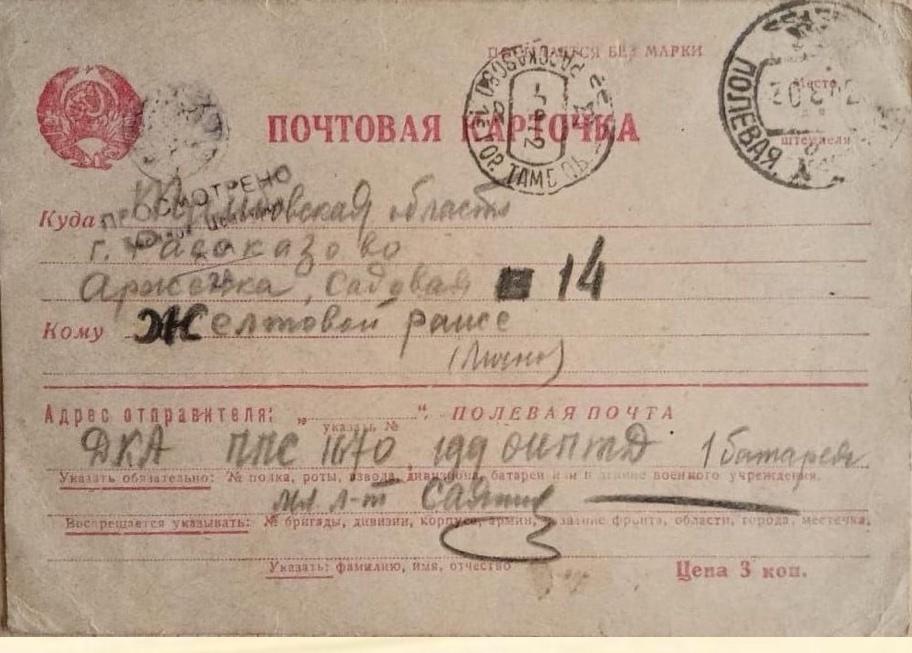 БЕЗ МАРКИ
ПОЧТОВАЯ КАРТОЧКА
ПОЛЕВАЯ
Место
штемпеля
ПРОСМОТРЕНО
Куда область
г. Рассказово
Арженка, Садовая 14
Кому Желтовой раисе
(Лично)
Адрес отправителя: „ “. ПОЛЕВАЯ ПОЧТА
указать №
ДКА ППС 1670 199 ОИПТД 1 батарея
Указать обязательно: № полка, роты, взвода, дивизиона, батареи или название военного учреждения.
мл л-т
Воспрещается указывать: № бригады, дивизии, корпуса, армии, название фронта, области, города, местечка,
Указать: фамилию, имя, отчество
Цена 3 коп.